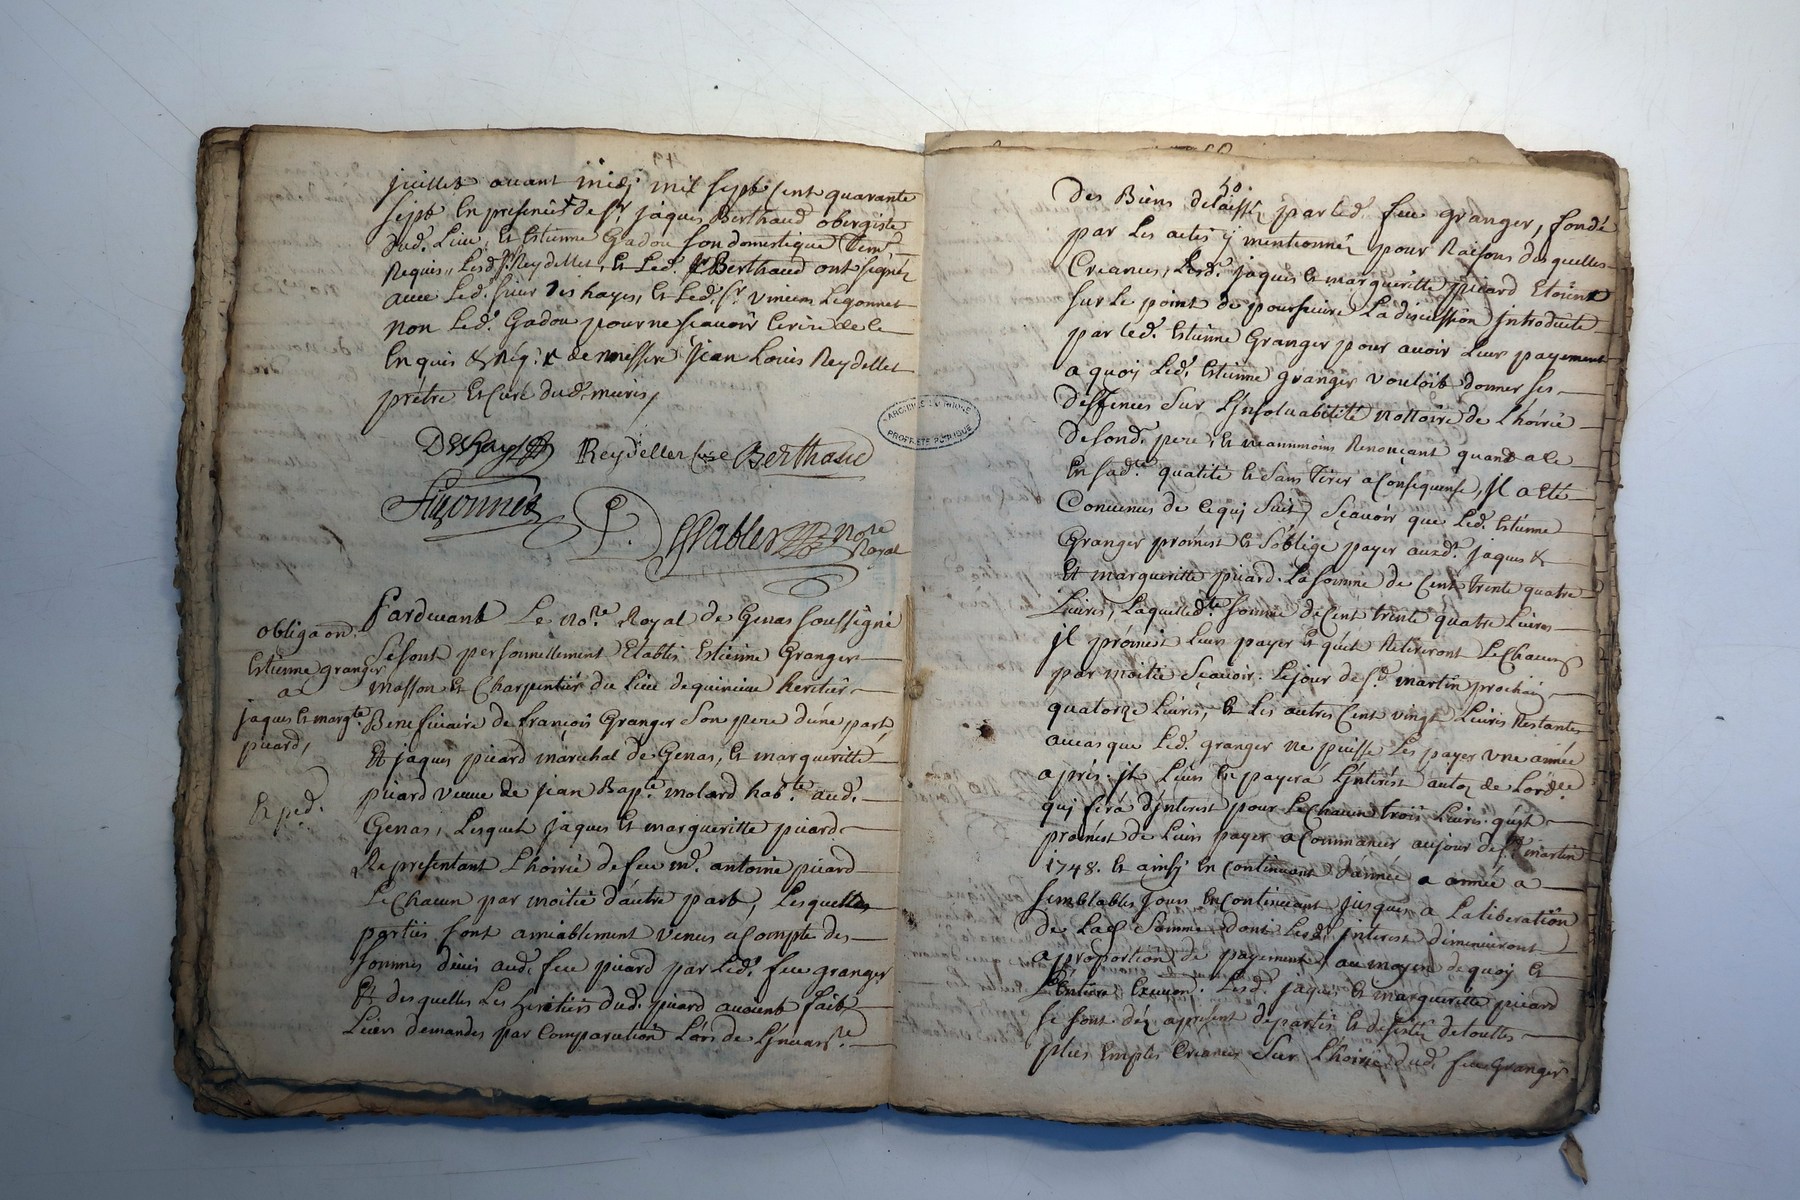 juillet avant midy mil sept cent quarante
sept En presence de Sr. jaques Berthaud obergiste
dud. Lieu, Et Estienne Gadou son domestique Tem.
Requis, Lesd. Srs. Reydellet, Et Led. Sr. Berthaud ont signé
avec Led. sieur Deshayes, Et Led. Sr. vincent Legonnet
non Led. Gadou pour ne scavoir Ecrire de ce
Enquis & Req. de messire Jean Louis Reydellet
prêtre Et Curé dud. meiris
Deshayes Reydellet Curé Berthaud
Ligonnet
P. Nore
Royal
obligaon.
Estienne granger
a
jaques Et margte.
picard,
Exped.
Pardevant Le Nore. Royal de Genas soussigné
Se sont personnellement Etablis Estienne Granger
masson Et Charpentier du Lieu de quincieu heritier
Beneficiaire de françois Granger son pere d'une part,
Et jaques picard maréchal de Genas, Et margueritte
picard veuve de jean Bapte. molard habte. aud.
Genas, Lesquels jaques Et margueritte picard
Representant L'hoirie de feu md. antoine picard
Le Chacun par moitié d'autre part, Lesquelles
parties sont amiablement venus a Compte des
sommes dues aud. feu picard par Led. feu granger
Et desquelles Les heritiers dud. picard avoient fait
Leurs demandes par Comparution Lors de L'invanre.
50.
Des Biens delaissés par led. feu granger, fondé
par Les actes y mentionnés pour Raisons desquelles
Creances, Lesd. jaques Et margueritte picard Etoient
sur Le point de poursuivre La discussion introduite
par led. Estienne Granger pour avoir Leur payement
a quoy Led. Estienne granger vouloit donner ses
deffences Sur L'insoluabilité nottoire de L'hoirie
de sond. pere, Et neanmoins Renonçant quand a ce
En sad. qualité Et sans Tirer a Consequense, Il a Eté
Convenus de Ce qui Suit, Sçavoir que Led. Estienne
Granger promest Et s'oblige payer auxd. jaques &
Et margueritte picard La somme de Cent trente quatre
Livres, Laquelled. somme de Cent trente quatre Livres
il promest Leurs payer Et qu'ils Retireront Le Chacun
par moitié Sçavoir. Le jour de St. martin prochain
quatorze Livres, Et Les autres Cent vingt Livres Restantes
au cas que Led. granger ne puisse Les payer une année
aprés, il Leurs En payera L'interest au toz de Lordce.
qui sera d'interest pour Le Chacun trois Livres qu'il
promest de Leurs payer a Commancer au jour de St. martin
1748. Et ainsy En Continuant d'année a année a
semblables jours En Continuant jusques a La liberation
de Lad. Somme dont Lesd. interest diminueront
a proportion de payement, au moyen de quoy Et
L'Entiere Exeuon. Lesd. jaques Et margueritte picard
se sont déz a present departis Et desisté de touttes
plus amples Creances Sur L'hoirie dud. feu Granger
ARCHIVES DU RHONE
PROPRIÉTÉ PUBLIQUE